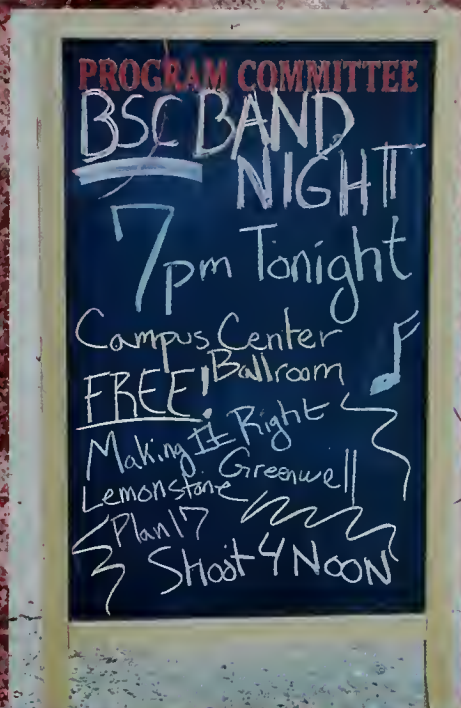 PROGRAM COMMITTEE
BSC BAND
NIGHT
7pm Tonight
Campus Center
Ballroom
FREE!
Making It Right
Greenwell
Lemonstone
Plan 17
Shoot 4 Noon